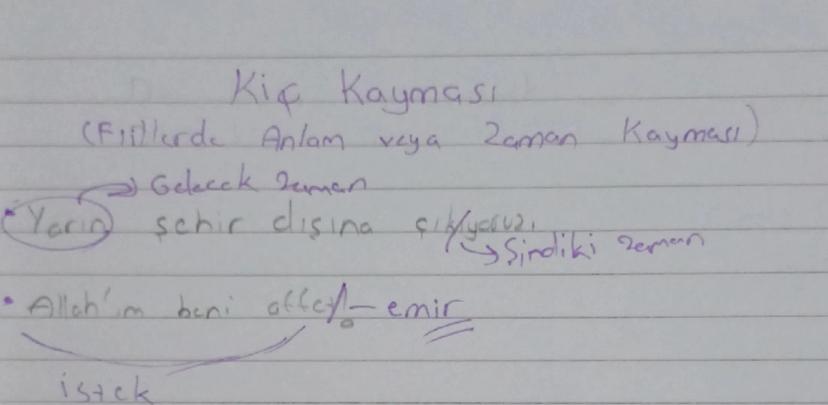 Kiç Kayması
(Fiillerde Anlam veya Zaman Kayması)
→ Gelecek Zaman
• Yarın şehir dışına çık/yoruz.
→ Şindiki zaman
• Allah'ım beni affet/!- emir
istek